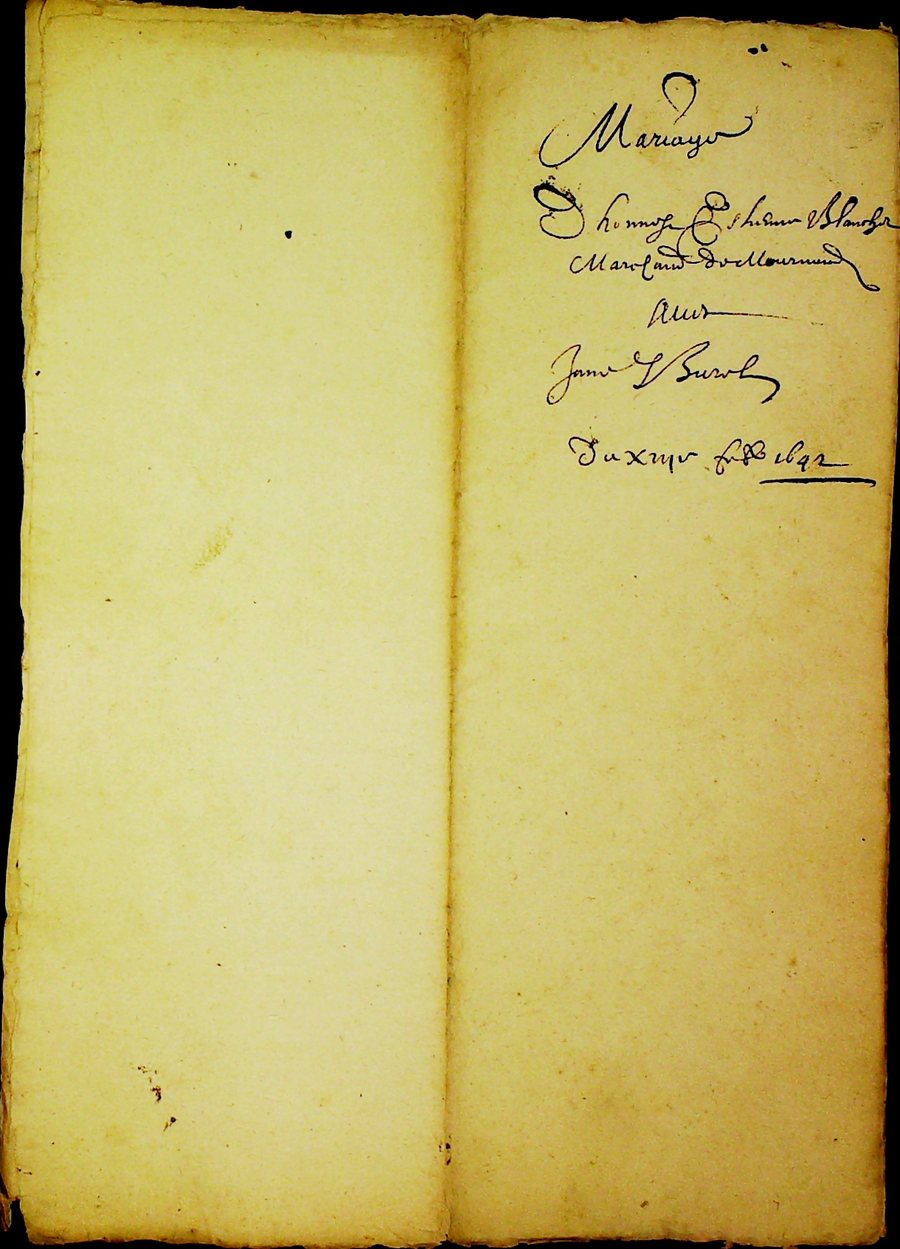 Mariage
D honneste Estienne Blanchet
Marchand de Mournand
Avec
Jane Burel
Du xvije feb 1642